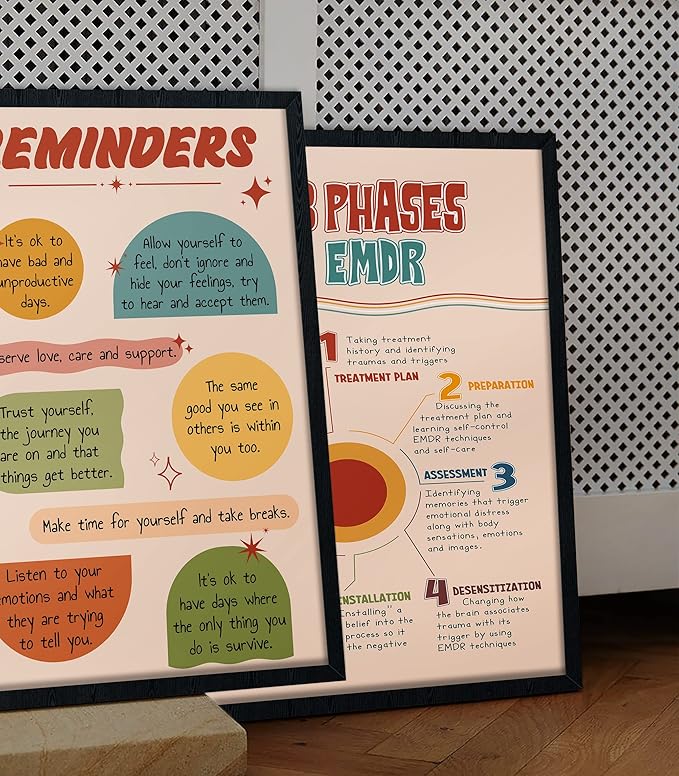 REMINDERS
It's ok to
have bad and
unproductive
days.
Allow yourself to
feel, don't ignore and
hide your feelings, try
to hear and accept them.
serve love, care and support.
The same
good you see in
others is within
you too.
Trust yourself,
the journey you
are on and that
things get better.
Make time for yourself and take breaks.
Listen to your
emotions and what
they are trying
to tell you.
It's ok to
have days where
the only thing you
do is survive.
8 PHASES
EMDR
1 Taking treatment
history and identifying
traumas and triggers
TREATMENT PLAN
2 PREPARATION
Discussing the
treatment plan and
learning self-control
EMDR techniques
and self-care
ASSESSMENT 3
Identifying
memories that trigger
emotional distress
along with body
sensations, emotions
and images.
4 DESENSITIZATION
Changing how
the brain associates
trauma with its
trigger by using
EMDR techniques
INSTALLATION
"Installing" a
belief into the
process so it
the negative